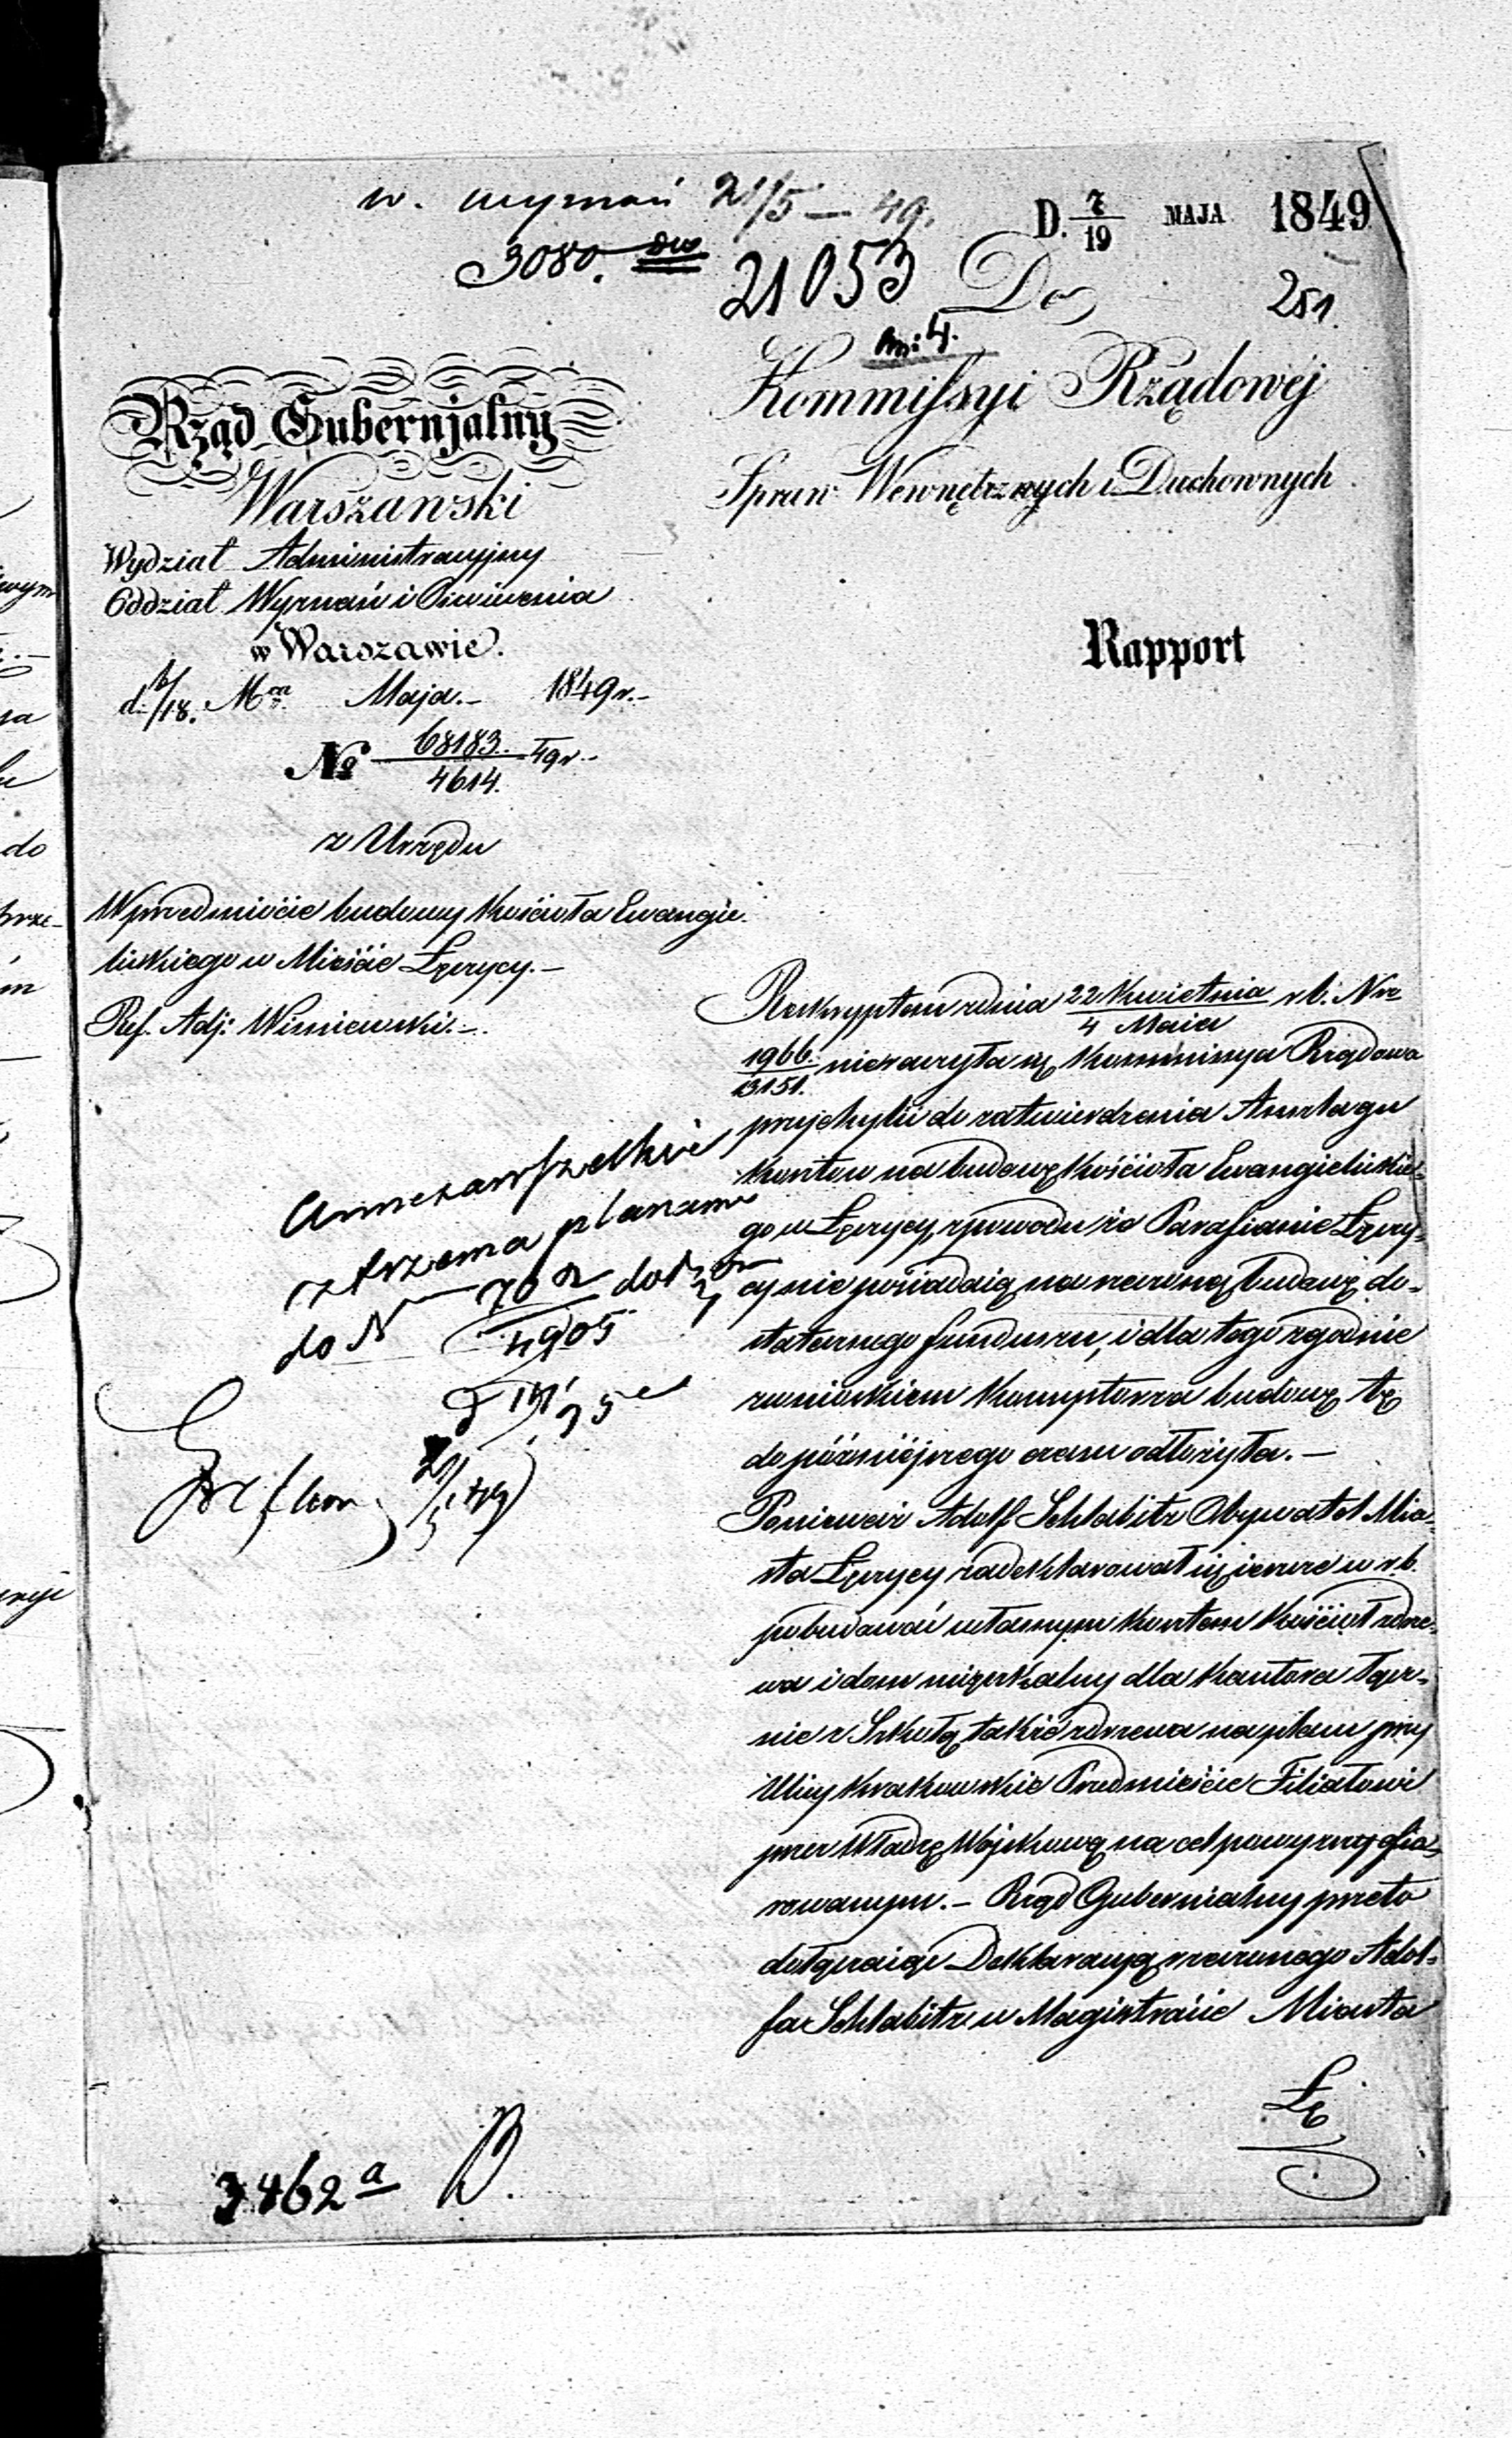 w. wyznań 21/5 – 49.
D. 7/19 MAJA 1849
3080.
21053
Do
251.
Kommissyi Rządowéj
Spraw Wewnętrznych i Duchownych
Rząd Gubernjalny
Warszawski
Wydział Administracyjny
Oddział Wyznań i Oświecenia
w Warszawie.
d. 6/18. Mca Maja.– 1849 r.–
№ 68183./4614. – 49 r.–
z Urzędu
Rapport
W przedmiocie budowy Kościoła Ewangie-
lickiego w Mieście Łęczycy.–
Ref. Adj: Wiśniewski.–
Reskryptem z dnia 22 Kwietnia/4 Maia r. b. Nro
1966./13151. nieraczyła się Kommissya Rządowa
przychylić do zatwierdzenia Anszlagu
kosztow na budowę Kościoła Ewangielickie-
go w Łęczycy, z powodu że Parafianie Łęczy-
cy nie posiadaią na rzeczoną budowę do-
statecznego funduszu, i dla tego zgodnie
z wnioskiem Konsystorza budowę tę
do późniéjszego czasu odłożyła.–
Ponieważ Adolf Schlabitz Obywatel Mia-
sta Łęczycy zadeklarował się ieszcze w r. b.
pobudować własnym kosztem Kościoł z drze-
wa i dom mięszkalny dla Kantora łącz-
nie z Szkołą także z drzewa na placu przy
Ulicy Krakowskie Przedmieście Filiałowi
przez Władzę Wojskową na cel powyższy ofia-
rowanym.– Rząd Gubernialny przeto
dołączaiąc Deklaracyą rzeczonego Adol-
fa Schlabitz w Magistracie Miasta
Łę
Anneza wszelkie
z trzema planami
do N
4905
3462 a
B.